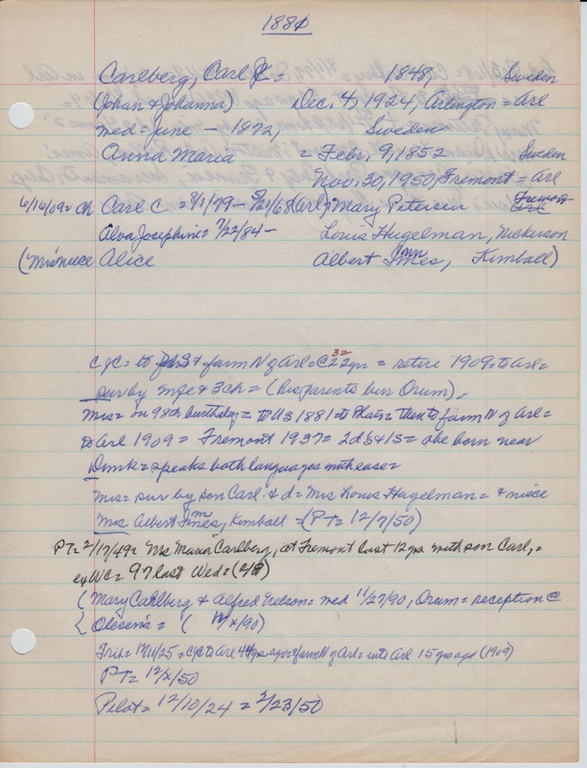 1881
Carlberg, Carl J. = 1848, Sweden
(Johan & Johanna) Dec. 4, 1924, Arlington = Arl
med = June - 1872, Sweden
Anna Maria = Febr. 9, 1852 Sweden
Nov. 30, 1950, Fremont = Arl
6/16/09 = ch Carl C = 9/1/79 - 5/21/68 (Arl) = Mary Petersen Fremont
Alva Josephine = 7/22/84 - Louis Hugelman, Nickerson
(Mrs niece Alice Albert Imes, Kimball)
CJC = to & farm N of Arl = @ 22 yrs 32 = retire 1909 to Arl =
sur by mge & 3 ch = (his parents bur Orum) =
Mrs = on 98th birthday = to US 1881 to Blair = then to farm N of Arl =
to Arl 1909 = Fremont 1937 = 2 d's & 1 s = she born near
= speaks both languages with ease =
Mrs = sur by son Carl & d = Mrs Louis Hugelman = & niece
Mrs Albert Imes, Kimball = (PT = 12/7/50)
PT = 2/17/49 = Mrs Maria Carlberg, at Fremont last 12 yrs with son Carl, =
97 last Wed = (2/9)
(Mary Carlberg & Alfred Nelson = med 11/27/90, Orum = reception @
Olesen's = ( 12/x/90)
Trib = 12/11/25 = CJC to Arl 44 yrs ago = farm N of Arl = into Arl 15 yrs ago (1909)
PT = 12/x/50
Pilot = 12/10/24 = 2/23/50